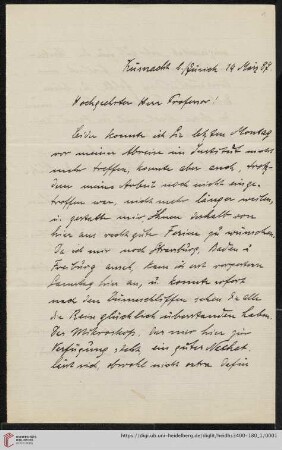 Küsnacht b/Zürich 14 März 87.
Hochgeehrter Herr Professor!
Leider konnte ich Sie letzten Montag
vor meiner Abreise im Institut nicht
mehr treffen, konnte aber auch, trotz-
dem meine Arbeit noch nicht einge-
troffen war, nicht mehr länger warten,
u. gestatte mir Ihnen deshalb von
hier aus recht gute Ferien zu wünschen.
Da ich mir noch Strassburg, Baden u
Freiburg ansah, kam ich erst vorgestern
Samstag hier an, u. konnte sofort
nach den Dünnschliffen sehen die alle
die Reise glücklich überstanden haben.
Das Mikroskop, das mir hier zur
Verfügung steht, ein guter
obwohl nicht extra dafür
UNIVERSITÄTS-BIBLIOTHEK HEIDELBERG
https://digi.ub.uni-heidelberg.de/diglit/heidhs3400-180_1/0001